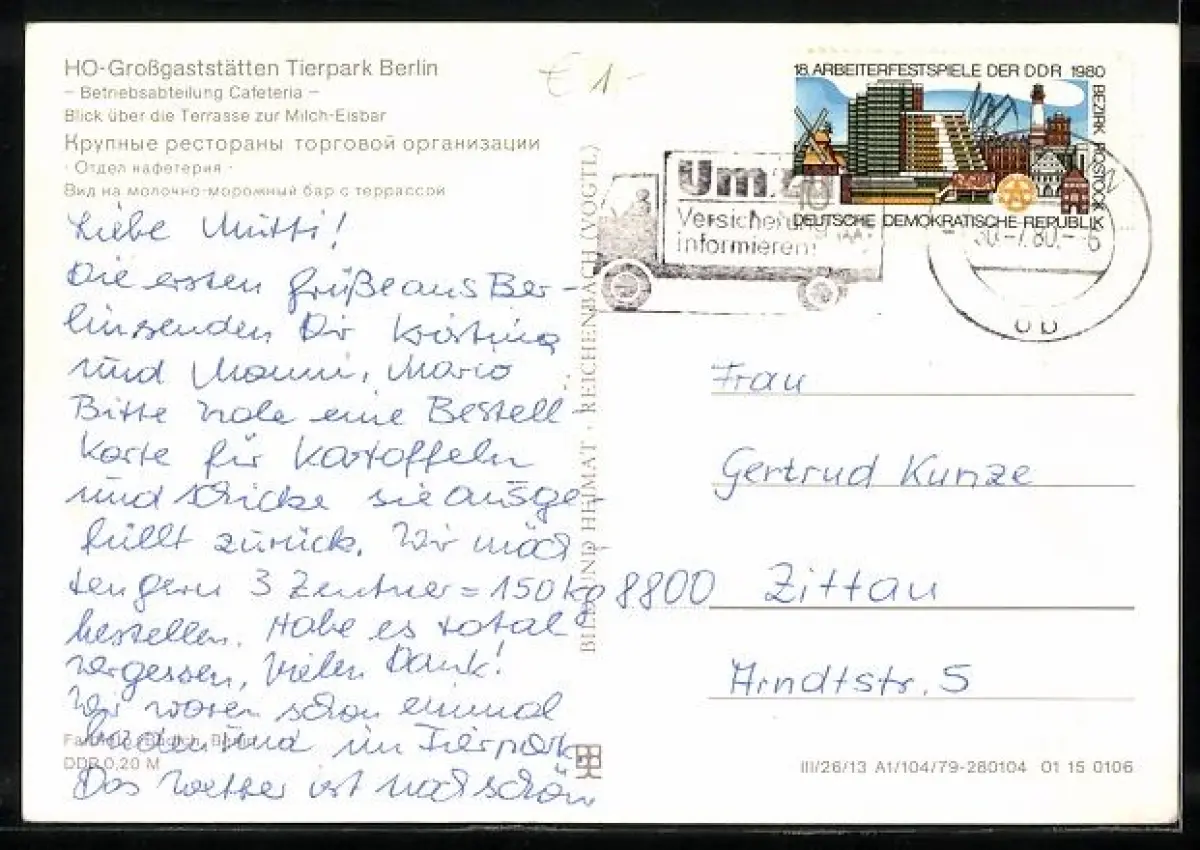 HO-Großgaststätten Tierpark Berlin
– Betriebsabteilung Cafeteria –
Blick über die Terrasse zur Milch-Eisbar
Крупные рестораны торговой организации
· Отдел кафетерия ·
Вид на молочно-морожный бар с террассой
Liebe Mutti!
Die ersten Grüße aus Ber-
lin senden Dir Kristina
und Manni, Mario
Bitte hole eine Bestell-
karte für Kartoffeln
und schicke sie ausge-
füllt zurück. Wir möch-
ten gern 3 Zentner = 150 kg
bestellen. Habe es total
vergessen, Vielen Dank!
Wir waren schon einmal
baden und im Tierpark.
Das Wetter ist noch schön
DDR 0,20 M
BILD UND HEIMAT · REICHENBACH (VOGTL)
€ 1-
18. ARBEITERFESTSPIELE DER DDR 1980
BEZIRK ROSTOCK
10
DEUTSCHE DEMOKRATISCHE REPUBLIK
Versicherung
informieren!
30.-7.80.- 6
Frau
Gertrud Kunze
8800 Zittau
Arndtstr. 5
III/26/13 A1/104/79-280104 01 15 0106